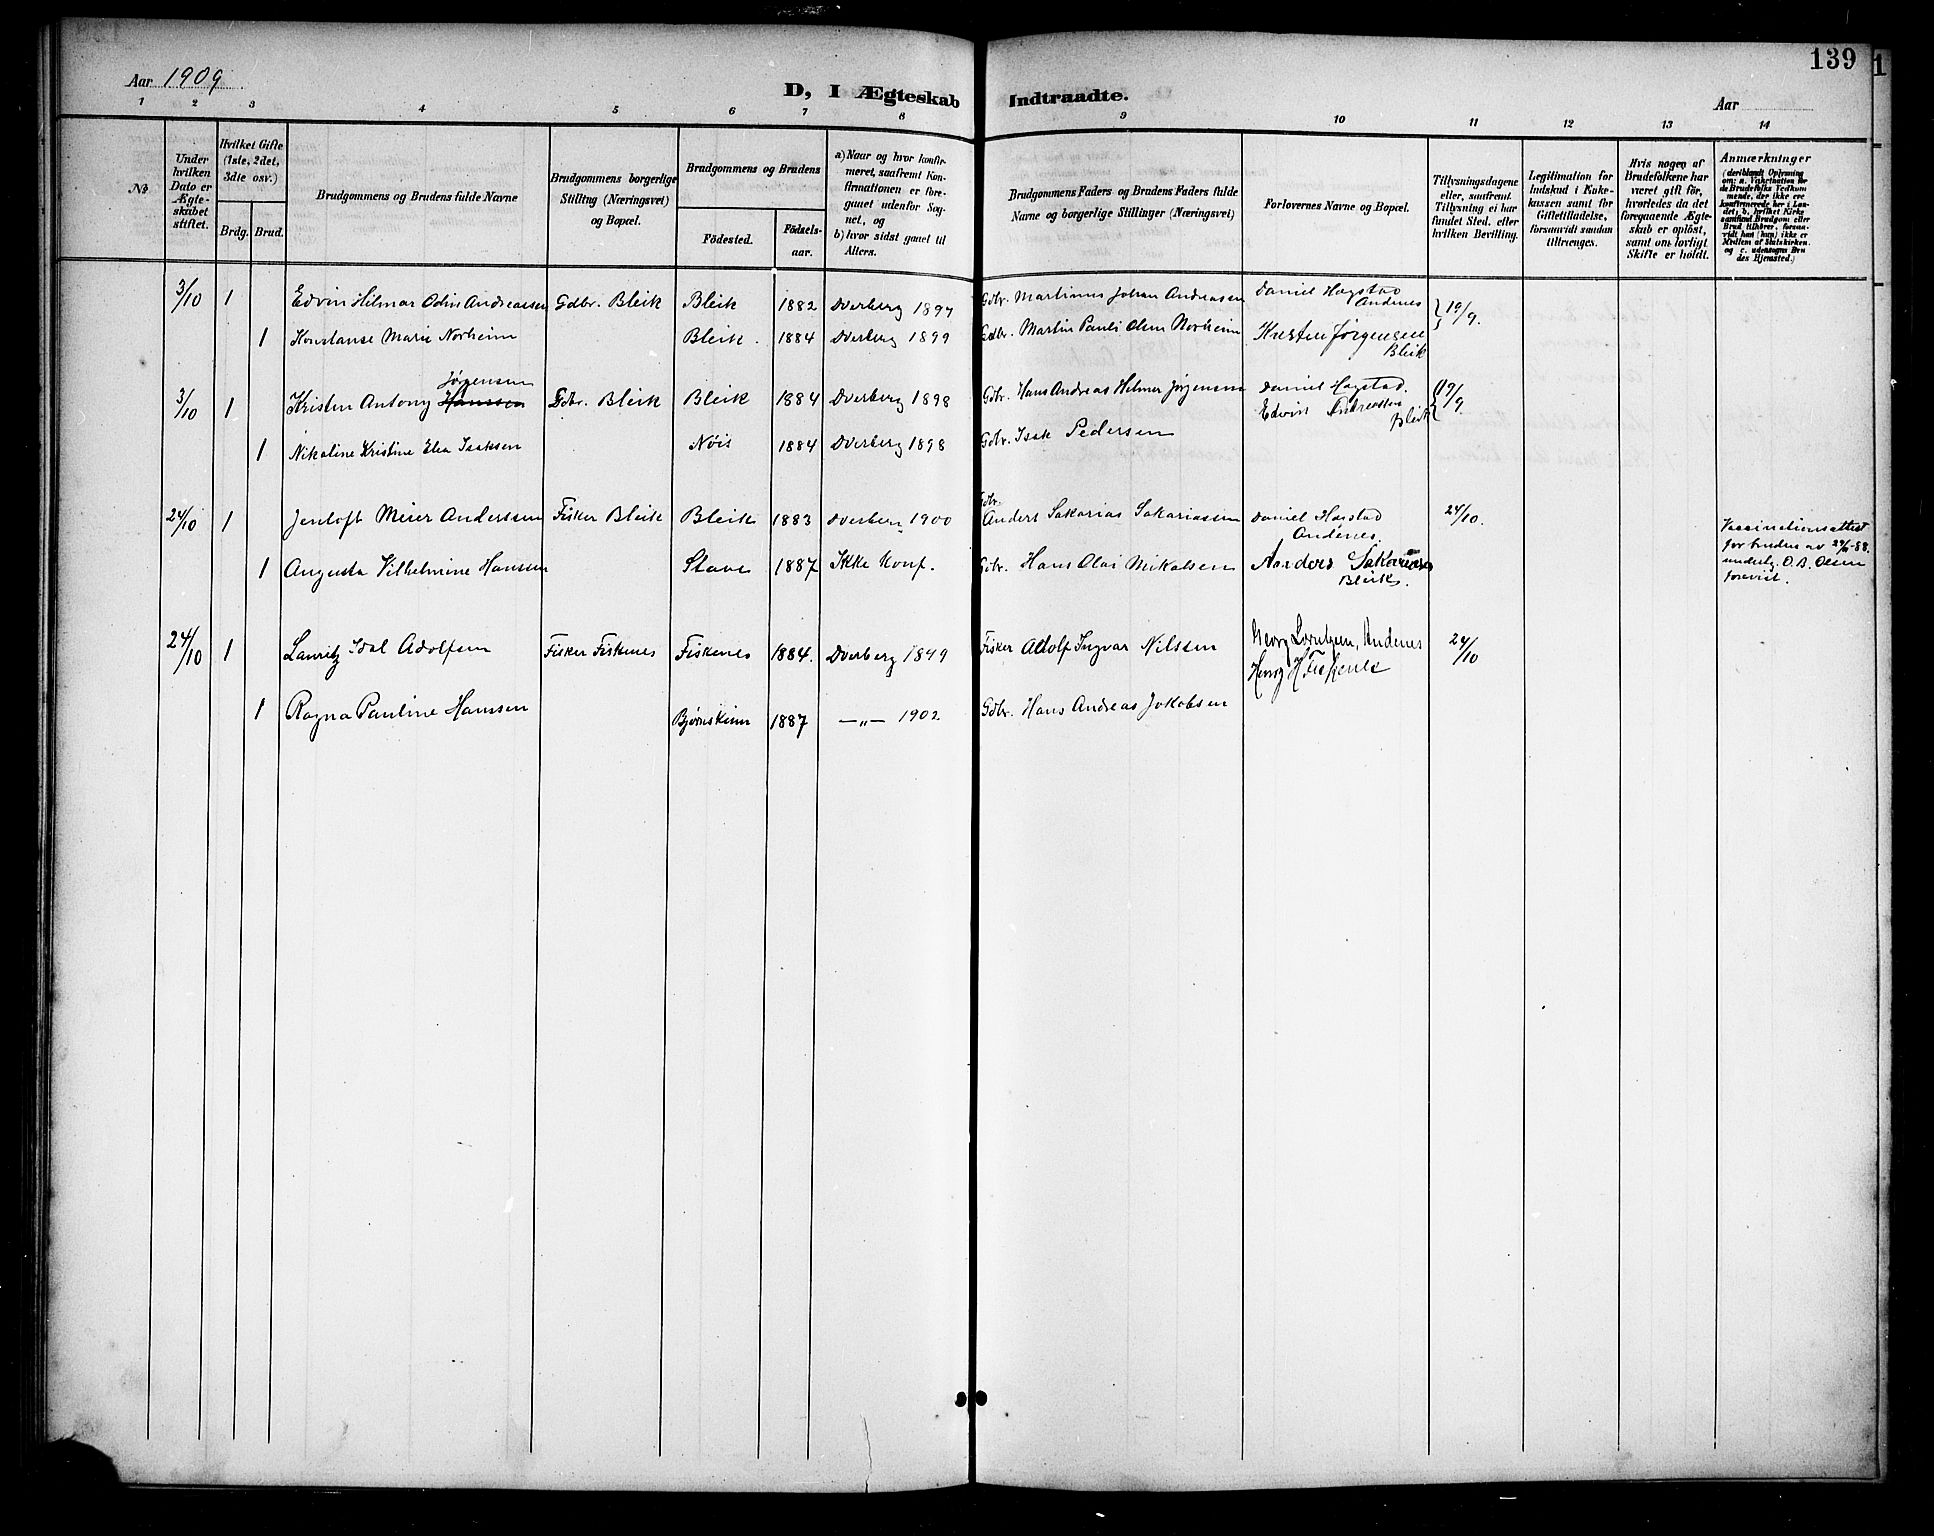 139
Aar 1909
D, I Ægteskab Indtraadte.
Aar
1 2 3 4 5 6 7 8 9 10 11 12 13 14
No
Under hvilken Dato er Ægteskabet stiftet.
Hvilket Gifte (1ste, 2det, 3dte osv.)
Brdg. Brud.
Brudgommens og Brudens fulde Navne
Brudgommens borgerlige Stilling (Næringsvei) og Bopæl.
Brudgommens og Brudens
Födested. Födselsaar.
a) Naar og hvor konfirmeret, saafremt Konfirmationen er foregaaet udenfor Sognet, og
b) hvor sidst gaaet til Alters.
Brudgommens Faders og Brudens Faders fulde Navne og borgerlige Stillinger (Næringsvei)
Forlovernes Navne og Bopæl.
Tillysningsdagene eller, saafremt Tillysning ei har fundet Sted, efter hvilken Bevilling.
Legitimation for Indskud i Enkekassen samt for Giftetilladelse, forsaavidt saadan tiltrænges.
Hvis nogen af Brudefolkene har været gift før, hvorledes da det foregaaende Ægteskab er oplöst, samt om lovligt Skifte er holdt.
Anmærkninger (deriblandt Oplysning om: a. Vaktination for de Brudefolks Vedkommende, der ikke ere konfirmerede her i Landet; b. hvilket Kirkesamfund Brudgom eller Brud tilhörer, forsaavidt han (hun) ikke er Medlem af Statskirken og c. udensogns Brudes Hjemsted.)
3/10 1 Edvin Hilmar Odin Andreassen Gdbr. Bleik Bleik 1882 Dverberg 1897 Gdbr. Martinus Johan Andreasen Daniel Hagstad Andenes } 19/9.
1 Konstanse Marie Norheim Bleik. 1884 Dverberg 1899 Gdbr. Martin Pauli Olsen Norheim Kristen Jørgensen Bleik
Jørgensen
3/10 1 Kristen Antony Hanssen Gdbr. Bleik Bleik 1884 Dverberg 1898 Gdbr. Hans Andreas Helmer Jørgensen Daniel Hagstad. Edvin Andreassen Bleik 19/9
1 Nikoline Kristine Elea Isaksen Nöis 1884 Dverberg 1898 Gdbr. Isak Pedersen
24/10 1 Jentoft Meier Anderssen Fisker Bleik Bleik 1883 Dverberg 1900 Gdbr. Anders Sakarias Sakariassen Daniel Hagstad Andenes. 24/10.
1 Augusta Vilhelmine Hansen Stave 1887 Ikke Konf. Gdbr. Hans Olai Mikalsen Anders Sakariasen Bleik.
Vaccinationsattest for bruden av 88. undertg. O. B. Olsen forevist.
24/10 1 Lauritz Idal Adolfsen Fisker Fiskenes Fiskenes 1884. Dverberg 1849 Fisker Adolf Ingvar Nilssen Georg Lorentzen, Andenes Henry H Fiskenes 24/10
1 Ragna Pauline Hanssen Bjørnskinn 1887 —„— 1902 Gdbr. Hans Andreas Jakobsen